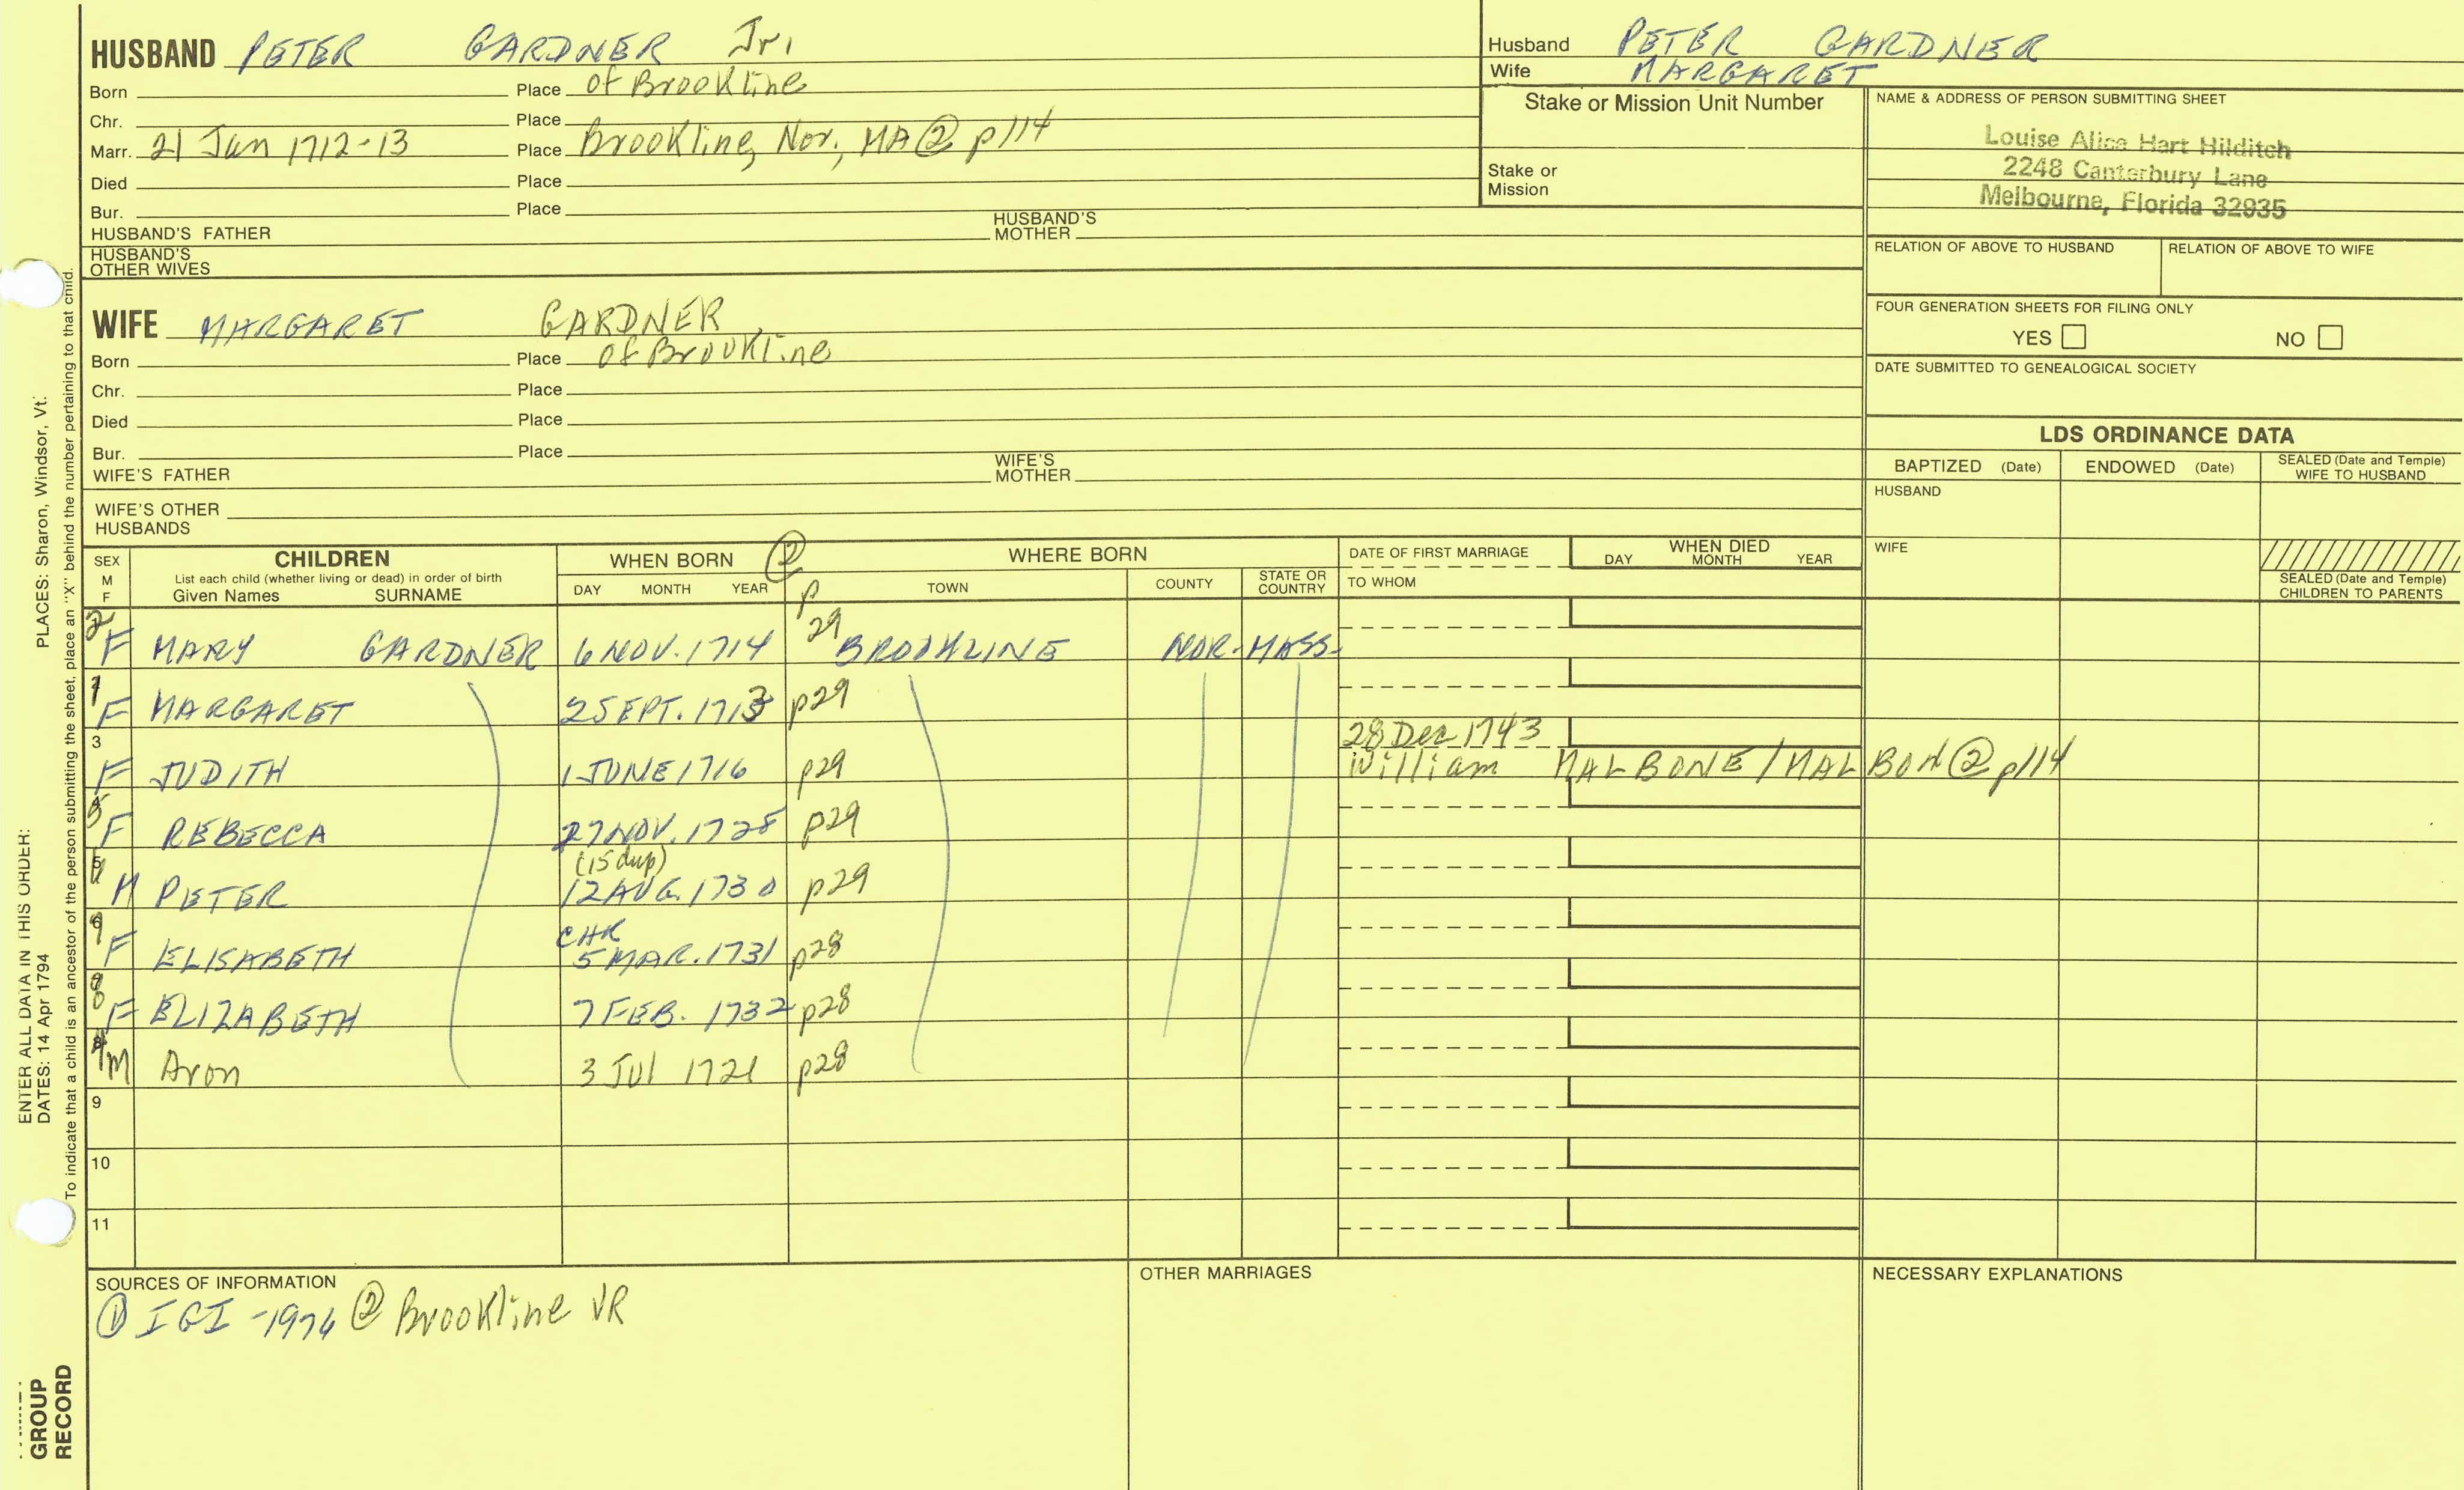 HUSBAND PETER GARDNER Jr.
Born Place of Brookline
Chr. Place
Marr. 21 Jan 1712-13 Place Brookline, Nor., MA ② p114
Died Place
Bur. Place
HUSBAND'S FATHER HUSBAND'S MOTHER
HUSBAND'S OTHER WIVES
Husband PETER GARDNER
Wife MARGARET
Stake or Mission Unit Number
Stake or Mission
NAME & ADDRESS OF PERSON SUBMITTING SHEET
Louise Alice Hart Hilditch
2248 Canterbury Lane
Melbourne, Florida 32935
RELATION OF ABOVE TO HUSBAND RELATION OF ABOVE TO WIFE
FOUR GENERATION SHEETS FOR FILING ONLY
YES NO
DATE SUBMITTED TO GENEALOGICAL SOCIETY
WIFE MARGARET GARDNER
Born Place of Brookline
Chr. Place
Died Place
Bur. Place
WIFE'S FATHER WIFE'S MOTHER
WIFE'S OTHER HUSBANDS
LDS ORDINANCE DATA
BAPTIZED (Date) ENDOWED (Date) SEALED (Date and Temple) WIFE TO HUSBAND
HUSBAND
WIFE
SEALED (Date and Temple) CHILDREN TO PARENTS
SEX M F
CHILDREN
List each child (whether living or dead) in order of birth
Given Names SURNAME
WHEN BORN ②
DAY MONTH YEAR p
WHERE BORN
TOWN COUNTY STATE OR COUNTRY
DATE OF FIRST MARRIAGE
TO WHOM
WHEN DIED
DAY MONTH YEAR
2 F MARY GARDNER 6 NOV. 1714 29 BROOKLINE NOR. MASS.
1 F MARGARET 2 SEPT. 1713 p29
3 F JUDITH 1 JUNE 1716 p29 28 Dec 1743
William MALBONE/MALBON ② p114
5 F REBECCA 27 NOV. 1728 p29
(15 dup)
M PETER 12 AUG. 1730 p29
F ELISABETH CHR 5 MAR. 1731 p28
F ELIZABETH 7 FEB. 1732 p28
M Aron 3 Jul 1721 p28
9
10
11
SOURCES OF INFORMATION
① IGI - 1976 ② Brookline VR
OTHER MARRIAGES
NECESSARY EXPLANATIONS
ENTER ALL DATA IN THIS ORDER:
DATES: 14 Apr 1794 PLACES: Sharon, Windsor, Vt.
To indicate that a child is an ancestor of the person submitting the sheet, place an "X" behind the number pertaining to that child.
GROUP
RECORD